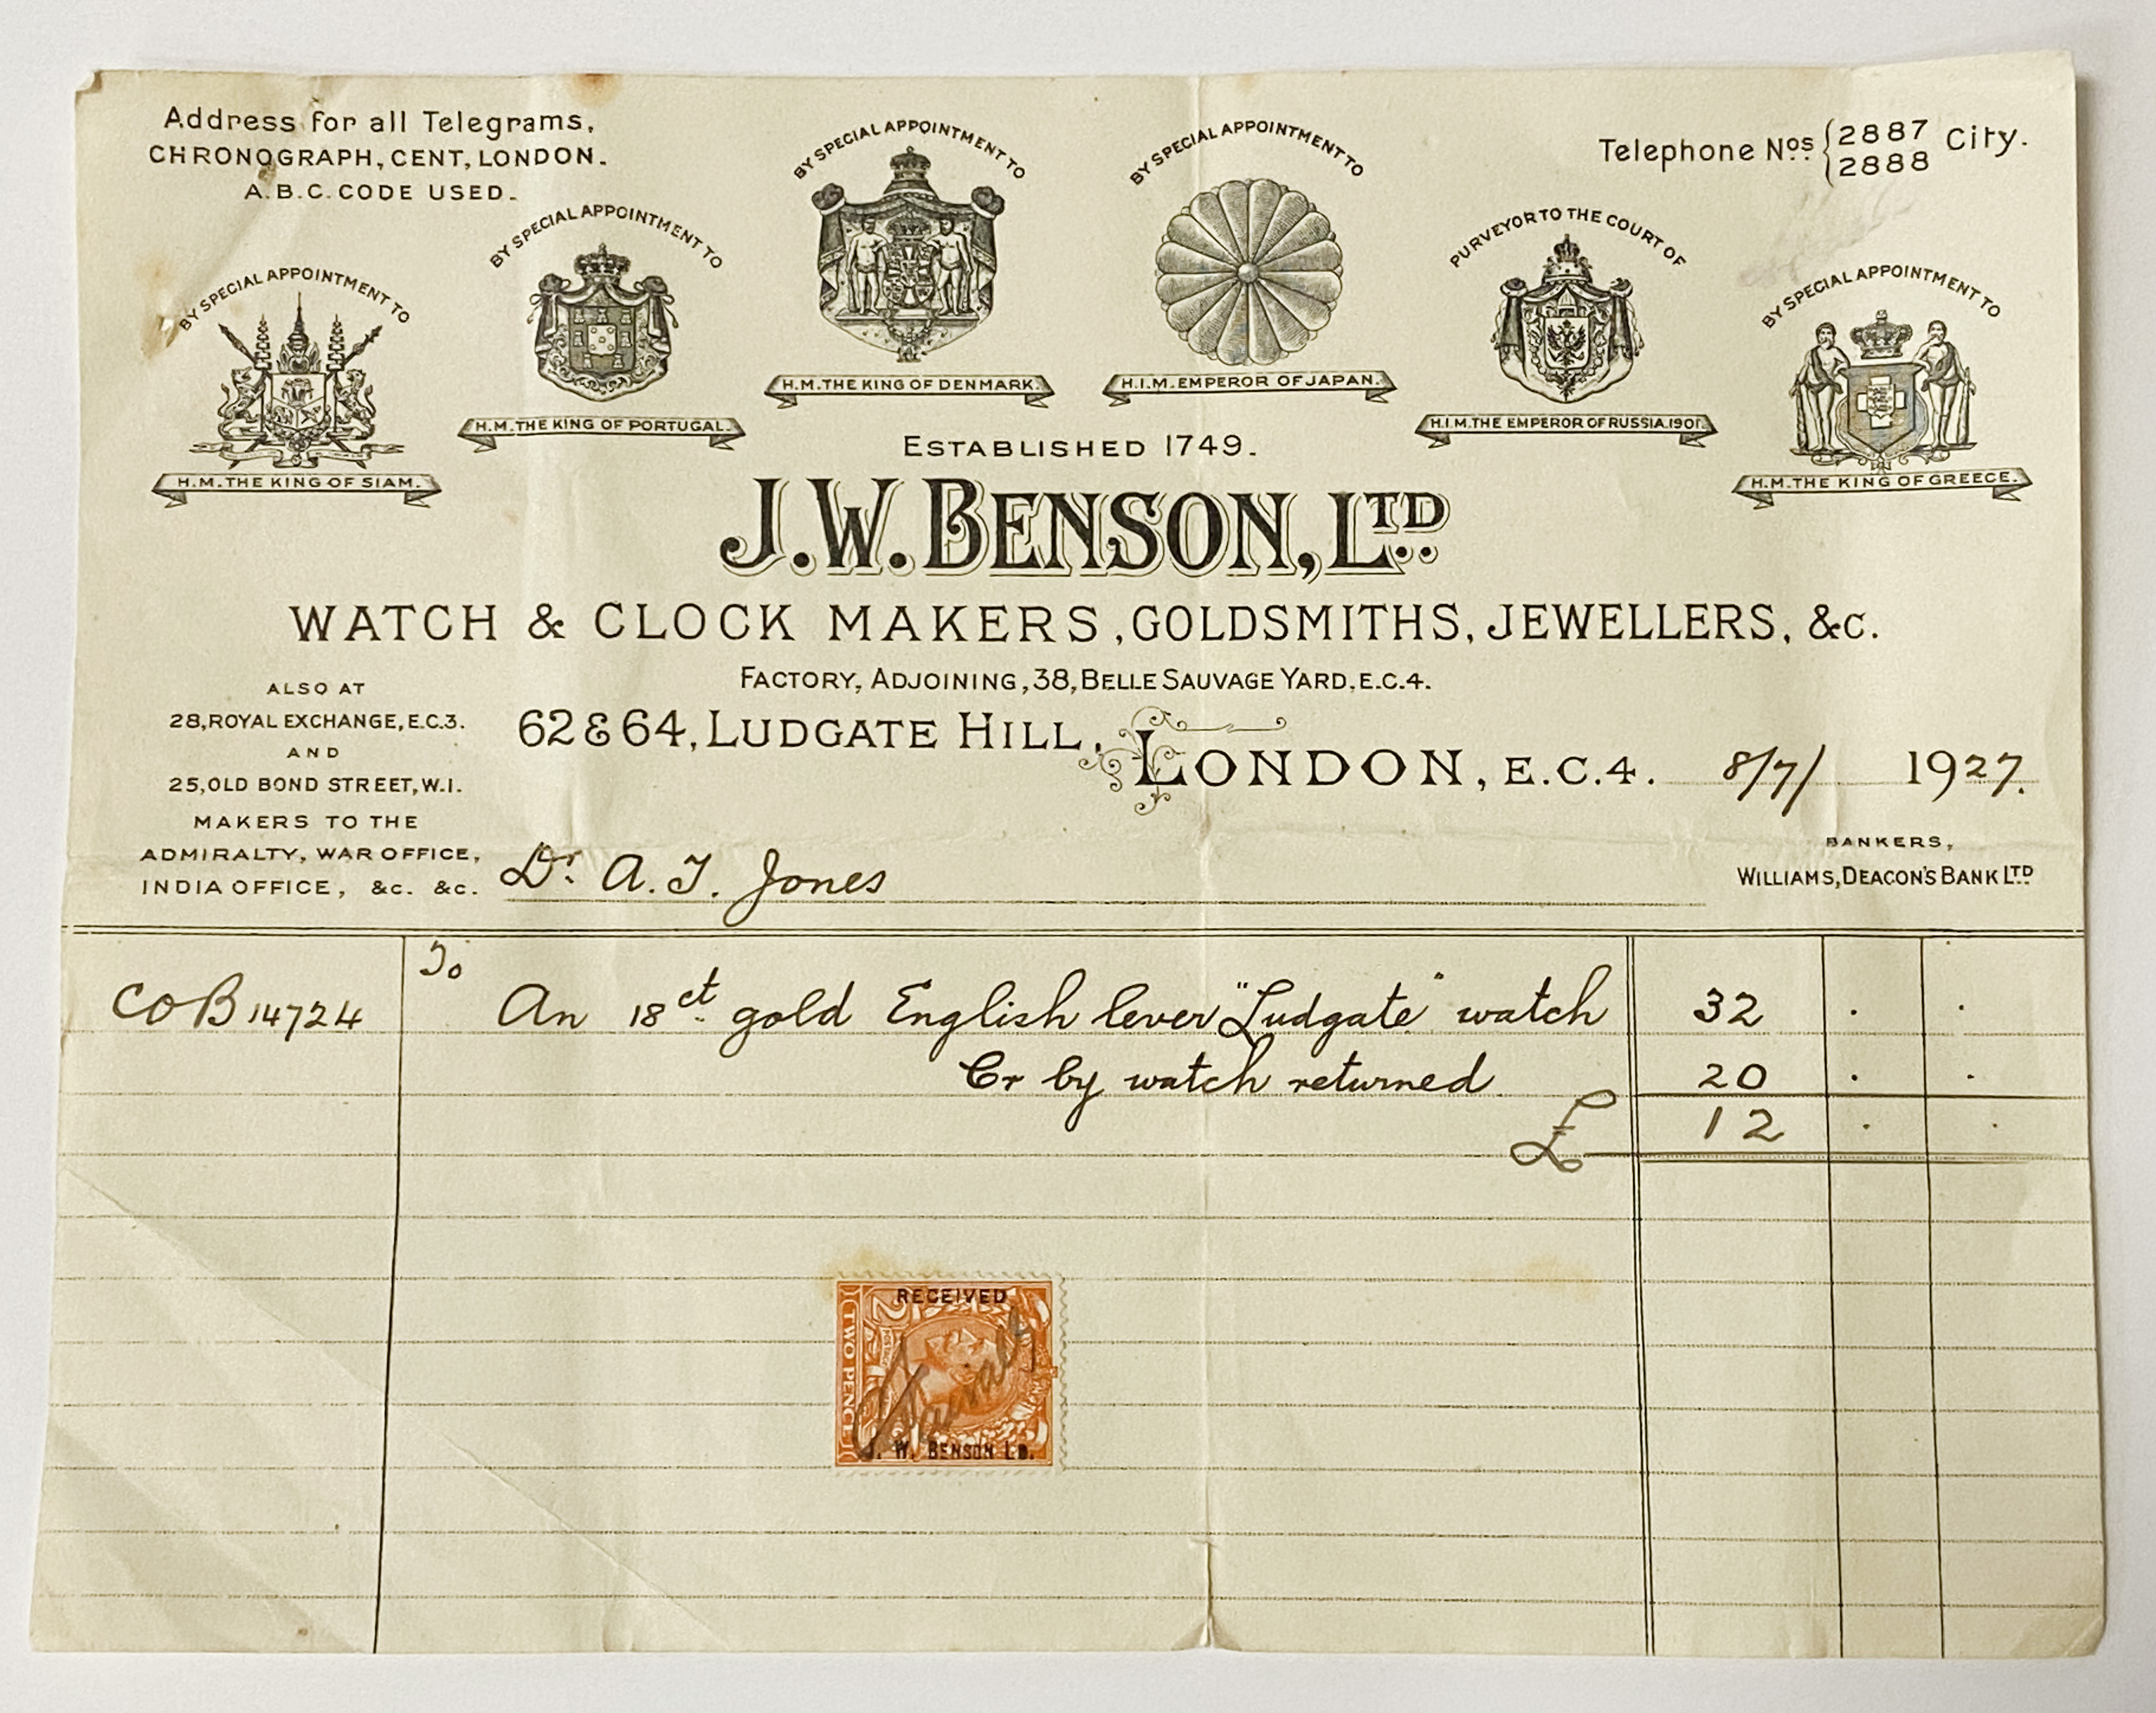 Address for all Telegrams,
CHRONOGRAPH, CENT, LONDON.
A.B.C. CODE USED.
Telephone Nos. { 2887 2888 City.
BY SPECIAL APPOINTMENT TO
H.M. THE KING OF SIAM.
BY SPECIAL APPOINTMENT TO
H.M. THE KING OF PORTUGAL.
BY SPECIAL APPOINTMENT TO
H.M. THE KING OF DENMARK.
BY SPECIAL APPOINTMENT TO
H.I.M. EMPEROR OF JAPAN.
PURVEYOR TO THE COURT OF
H.I.M. THE EMPEROR OF RUSSIA. 1901.
BY SPECIAL APPOINTMENT TO
H.M. THE KING OF GREECE.
ESTABLISHED 1749.
J.W. BENSON, LTD.
WATCH & CLOCK MAKERS, GOLDSMITHS, JEWELLERS, &c.
FACTORY, ADJOINING, 38, BELLE SAUVAGE YARD, E.C.4.
62 & 64, LUDGATE HILL, LONDON, E.C.4. 8/7/ 1927.
ALSO AT
28, ROYAL EXCHANGE, E.C.3.
AND
25, OLD BOND STREET, W.1.
MAKERS TO THE
ADMIRALTY, WAR OFFICE,
INDIA OFFICE, &c. &c.
BANKERS,
WILLIAMS, DEACON'S BANK LTD.
Dr. A. J. Jones
To
COB 14724 An 18ct. gold English lever "Ludgate" watch 32 . .
Cr by watch returned 20 . .
£ 12 . .
RECEIVED
TWO PENCE
2
J. W. BENSON LD.